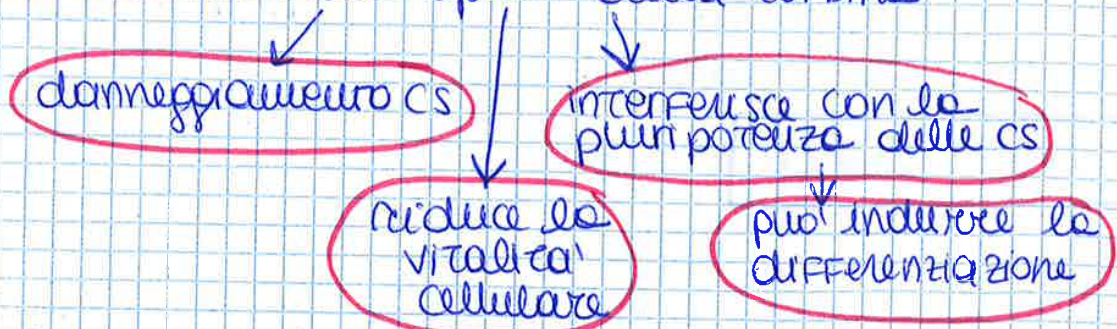 danneggiamento CS
interferisce con la
pluripotenza delle CS
riduce la
vitalità
cellulare
può indurre la
differenziazione